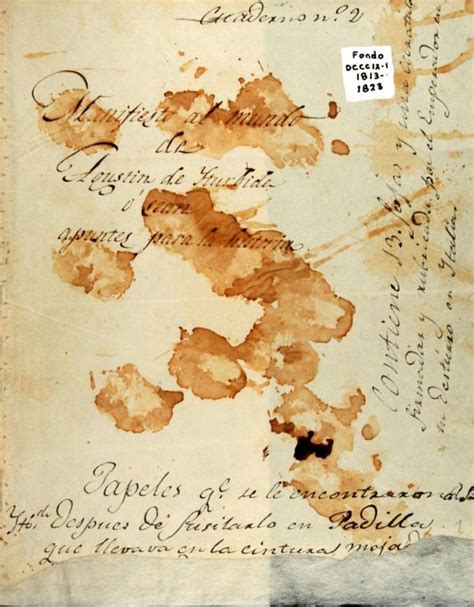 Cuaderno nº 2
Fondo
DCCCIX-1
1813-
1823
Manifiesto al mundo
de
Agustin de Iturbide
ó sean
apuntes para la historia
Contiene 13. fojas y una caratula
firmadas y rubricadas por el Emperador en
su destierro en Italia
Papeles qe. se le encontraron al Sr.
Ytde. Despues de fusilarlo en Padilla
que llevava en la cintura mojad